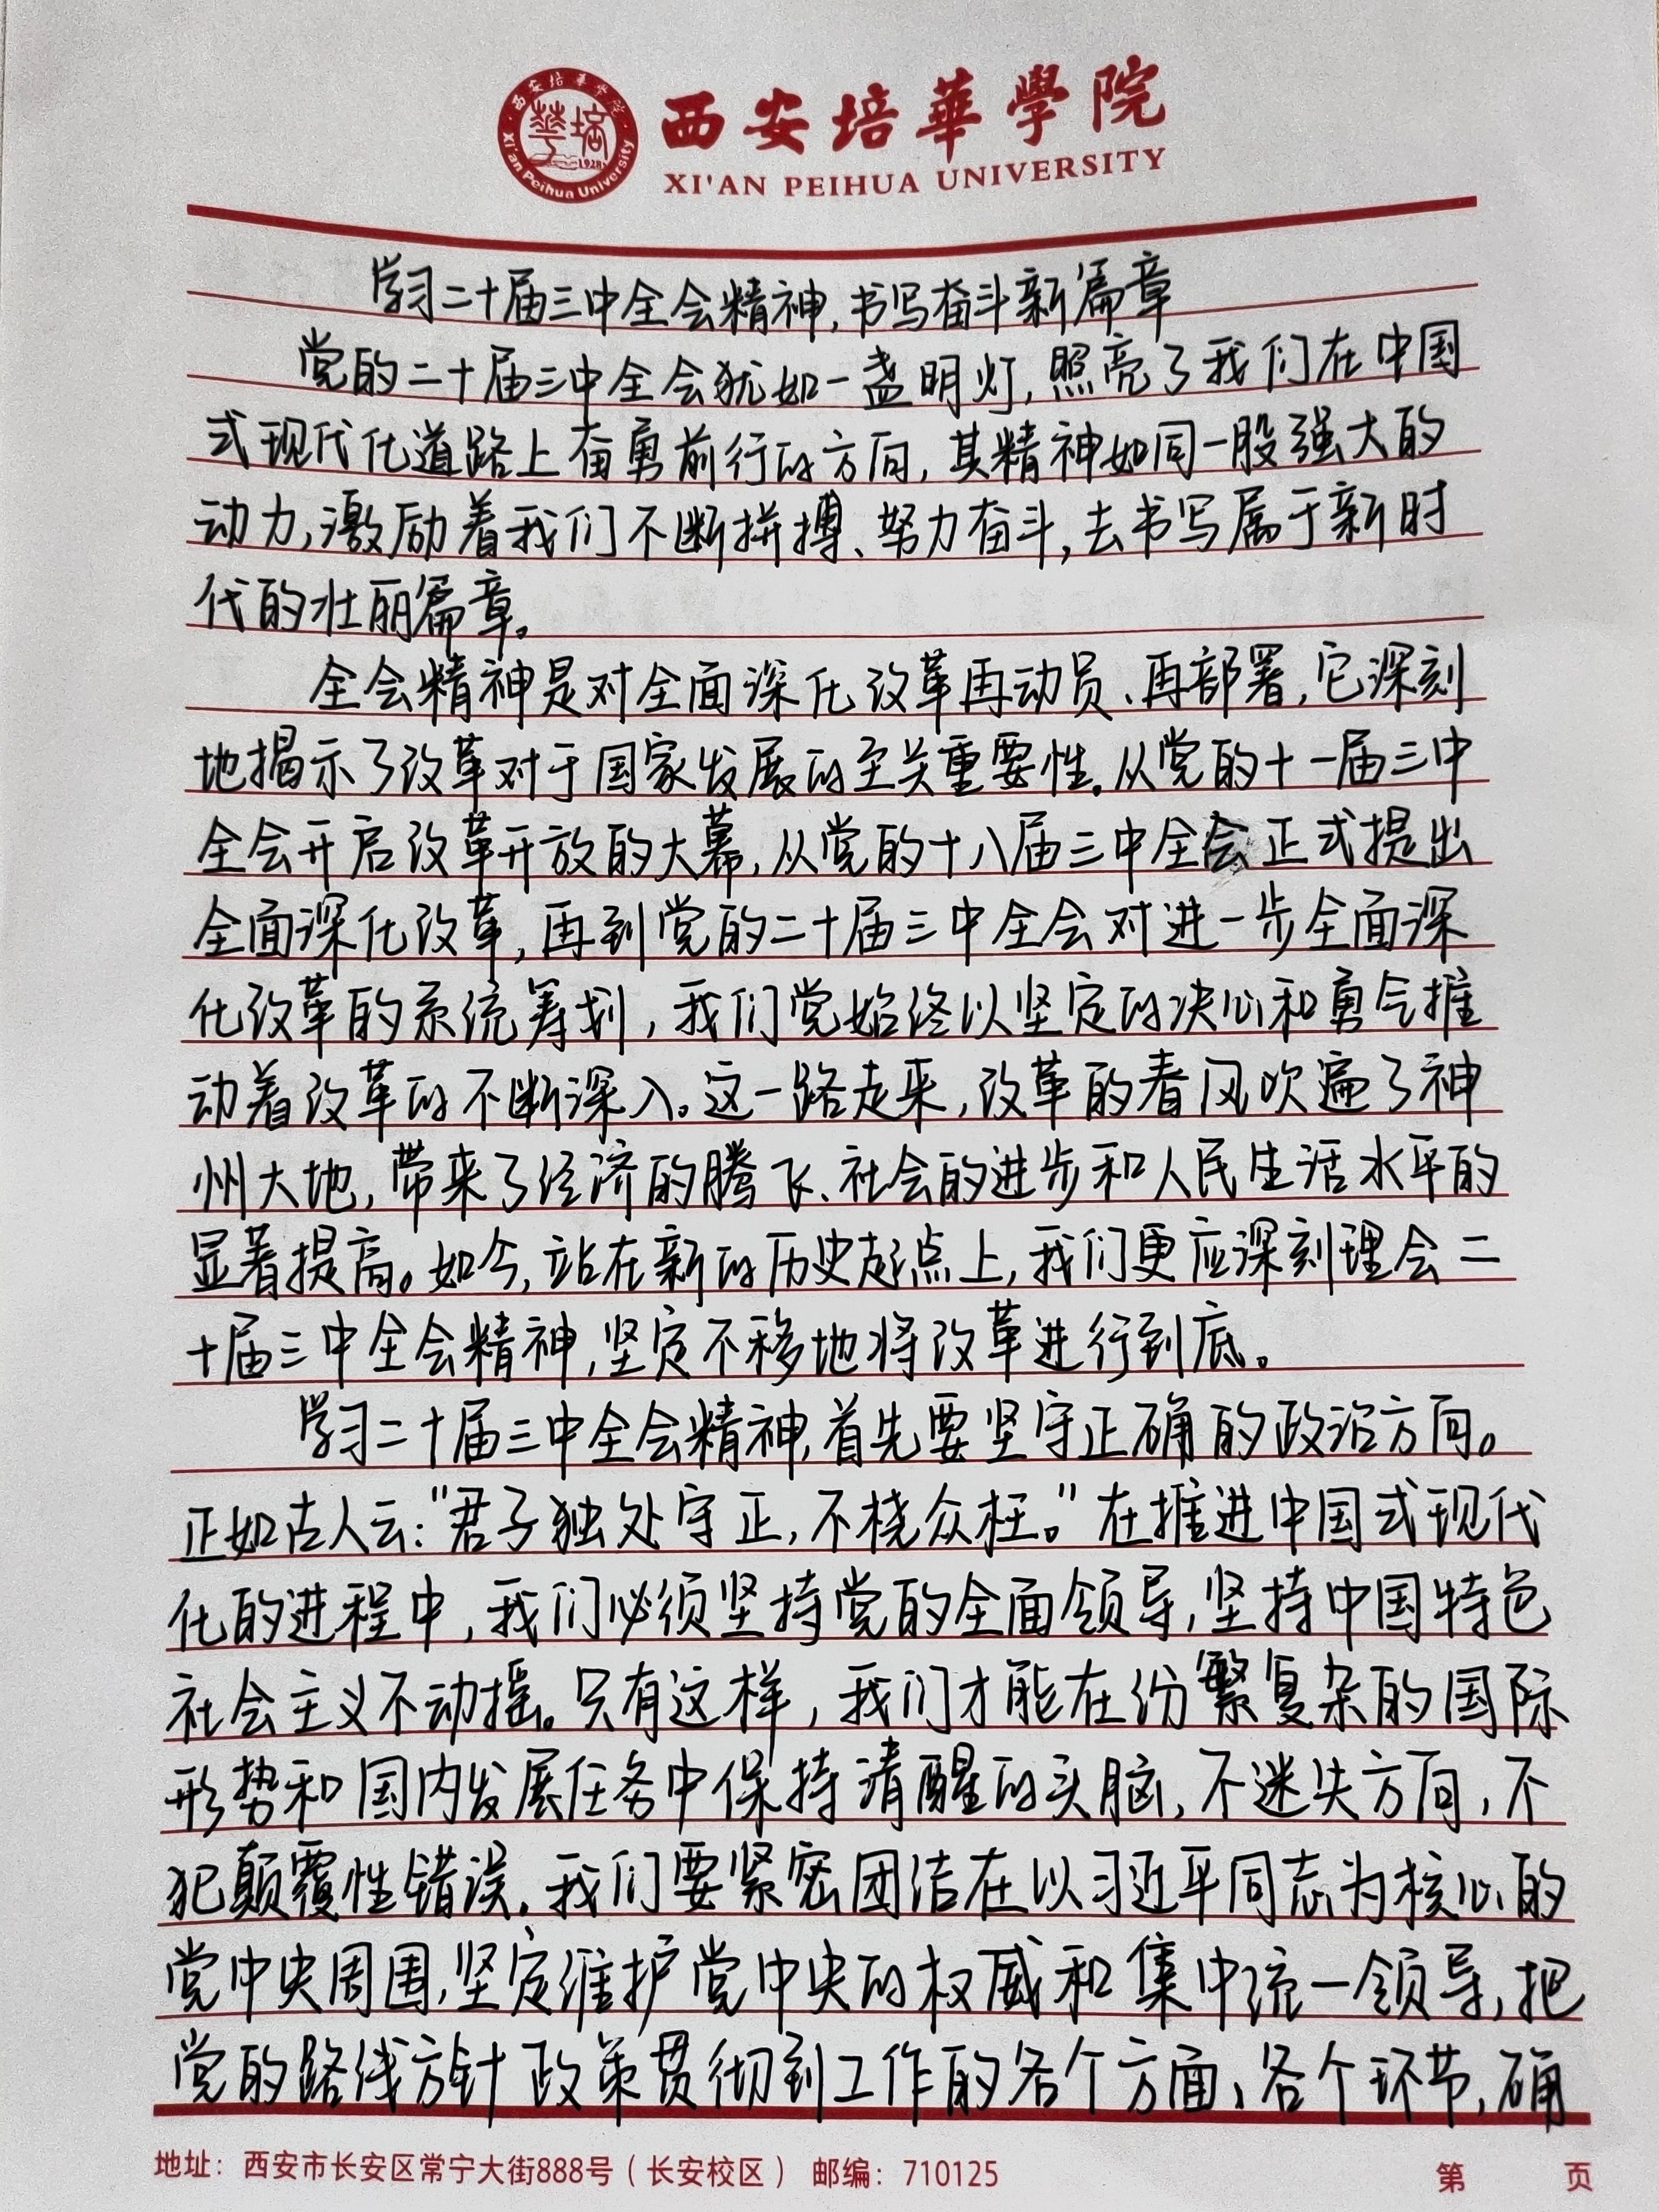 西安培華學院
XI'AN PEIHUA UNIVERSITY
西安培华学院
華培
1928
Xi'an Peihua University
学习二十届三中全会精神,书写奋斗新篇章
党的二十届三中全会犹如一盏明灯,照亮了我们在中国
式现代化道路上奋勇前行的方向,其精神如同一股强大的
动力,激励着我们不断拼搏、努力奋斗,去书写属于新时
代的壮丽篇章。
全会精神是对全面深化改革再动员、再部署,它深刻
地揭示了改革对于国家发展的至关重要性。从党的十一届三中
全会开启改革开放的大幕,从党的十八届三中全会正式提出
全面深化改革,再到党的二十届三中全会对进一步全面深
化改革的系统筹划,我们党始终以坚定的决心和勇气推
动着改革的不断深入。这一路走来,改革的春风吹遍了神
州大地,带来了经济的腾飞、社会的进步和人民生活水平的
显著提高。如今,站在新的历史起点上,我们更应深刻理会二
十届三中全会精神,坚定不移地将改革进行到底。
学习二十届三中全会精神,首先要坚守正确的政治方向。
正如古人云:"君子独处守正,不桡众枉。"在推进中国式现代
化的进程中,我们必须坚持党的全面领导,坚持中国特色
社会主义不动摇。只有这样,我们才能在纷繁复杂的国际
形势和国内发展任务中保持清醒的头脑,不迷失方向,不
犯颠覆性错误。我们要紧密团结在以习近平同志为核心的
党中央周围,坚定维护党中央的权威和集中统一领导,把
党的路线方针政策贯彻到工作的各个方面、各个环节,确
地址:西安市长安区常宁大街888号(长安校区) 邮编:710125
第 页